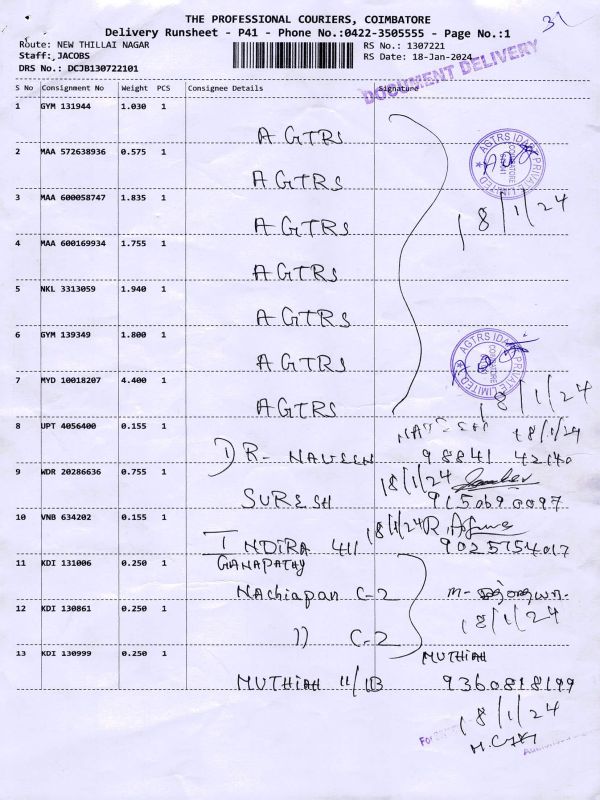 31
THE PROFESSIONAL COURIERS, COIMBATORE
Delivery Runsheet - P41 - Phone No.:0422-3505555 - Page No.:1
Route: NEW THILLAI NAGAR
RS No.: 1307221
Staff: JACOBS
RS Date: 18-Jan-2024
DRS No.: DCJB130722101
DOCUMENT DELIVERY
S No Consignment No Weight PCS Consignee Details Signature
1 GYM 131944 1.030 1
AGTRS
2 MAA 572638936 0.575 1
AGTRS
AGTRS IDA PRIVATE LIMITED COIMBATORE
18/1/24
3 MAA 600058747 1.835 1
AGTRS
4 MAA 600169934 1.755 1
AGTRS
5 NKL 3313059 1.940 1
AGTRS
6 GYM 139349 1.800 1
AGTRS
AGTRS IDA PRIVATE LIMITED COIMBATORE
7 MYD 10018207 4.400 1
AGTRS
18/1/24
8 UPT 4056400 0.155 1
18/1/24
DR- NAVEEN 98841 42140
9 WDR 20286636 0.755 1
18/1/24
SURESH 9150690097
10 VNB 634202 0.155 1
18/1/24
INDIRA 411 9025754017
11 KDI 131006 0.250 1
GANAPATHY
NAchiapan C-2
12 KDI 130861 0.250 1
18/1/24
11 C-2
13 KDI 130999 0.250 1
MUTHIAH
MUTHIAH 11/1B 9360818199
18/1/24